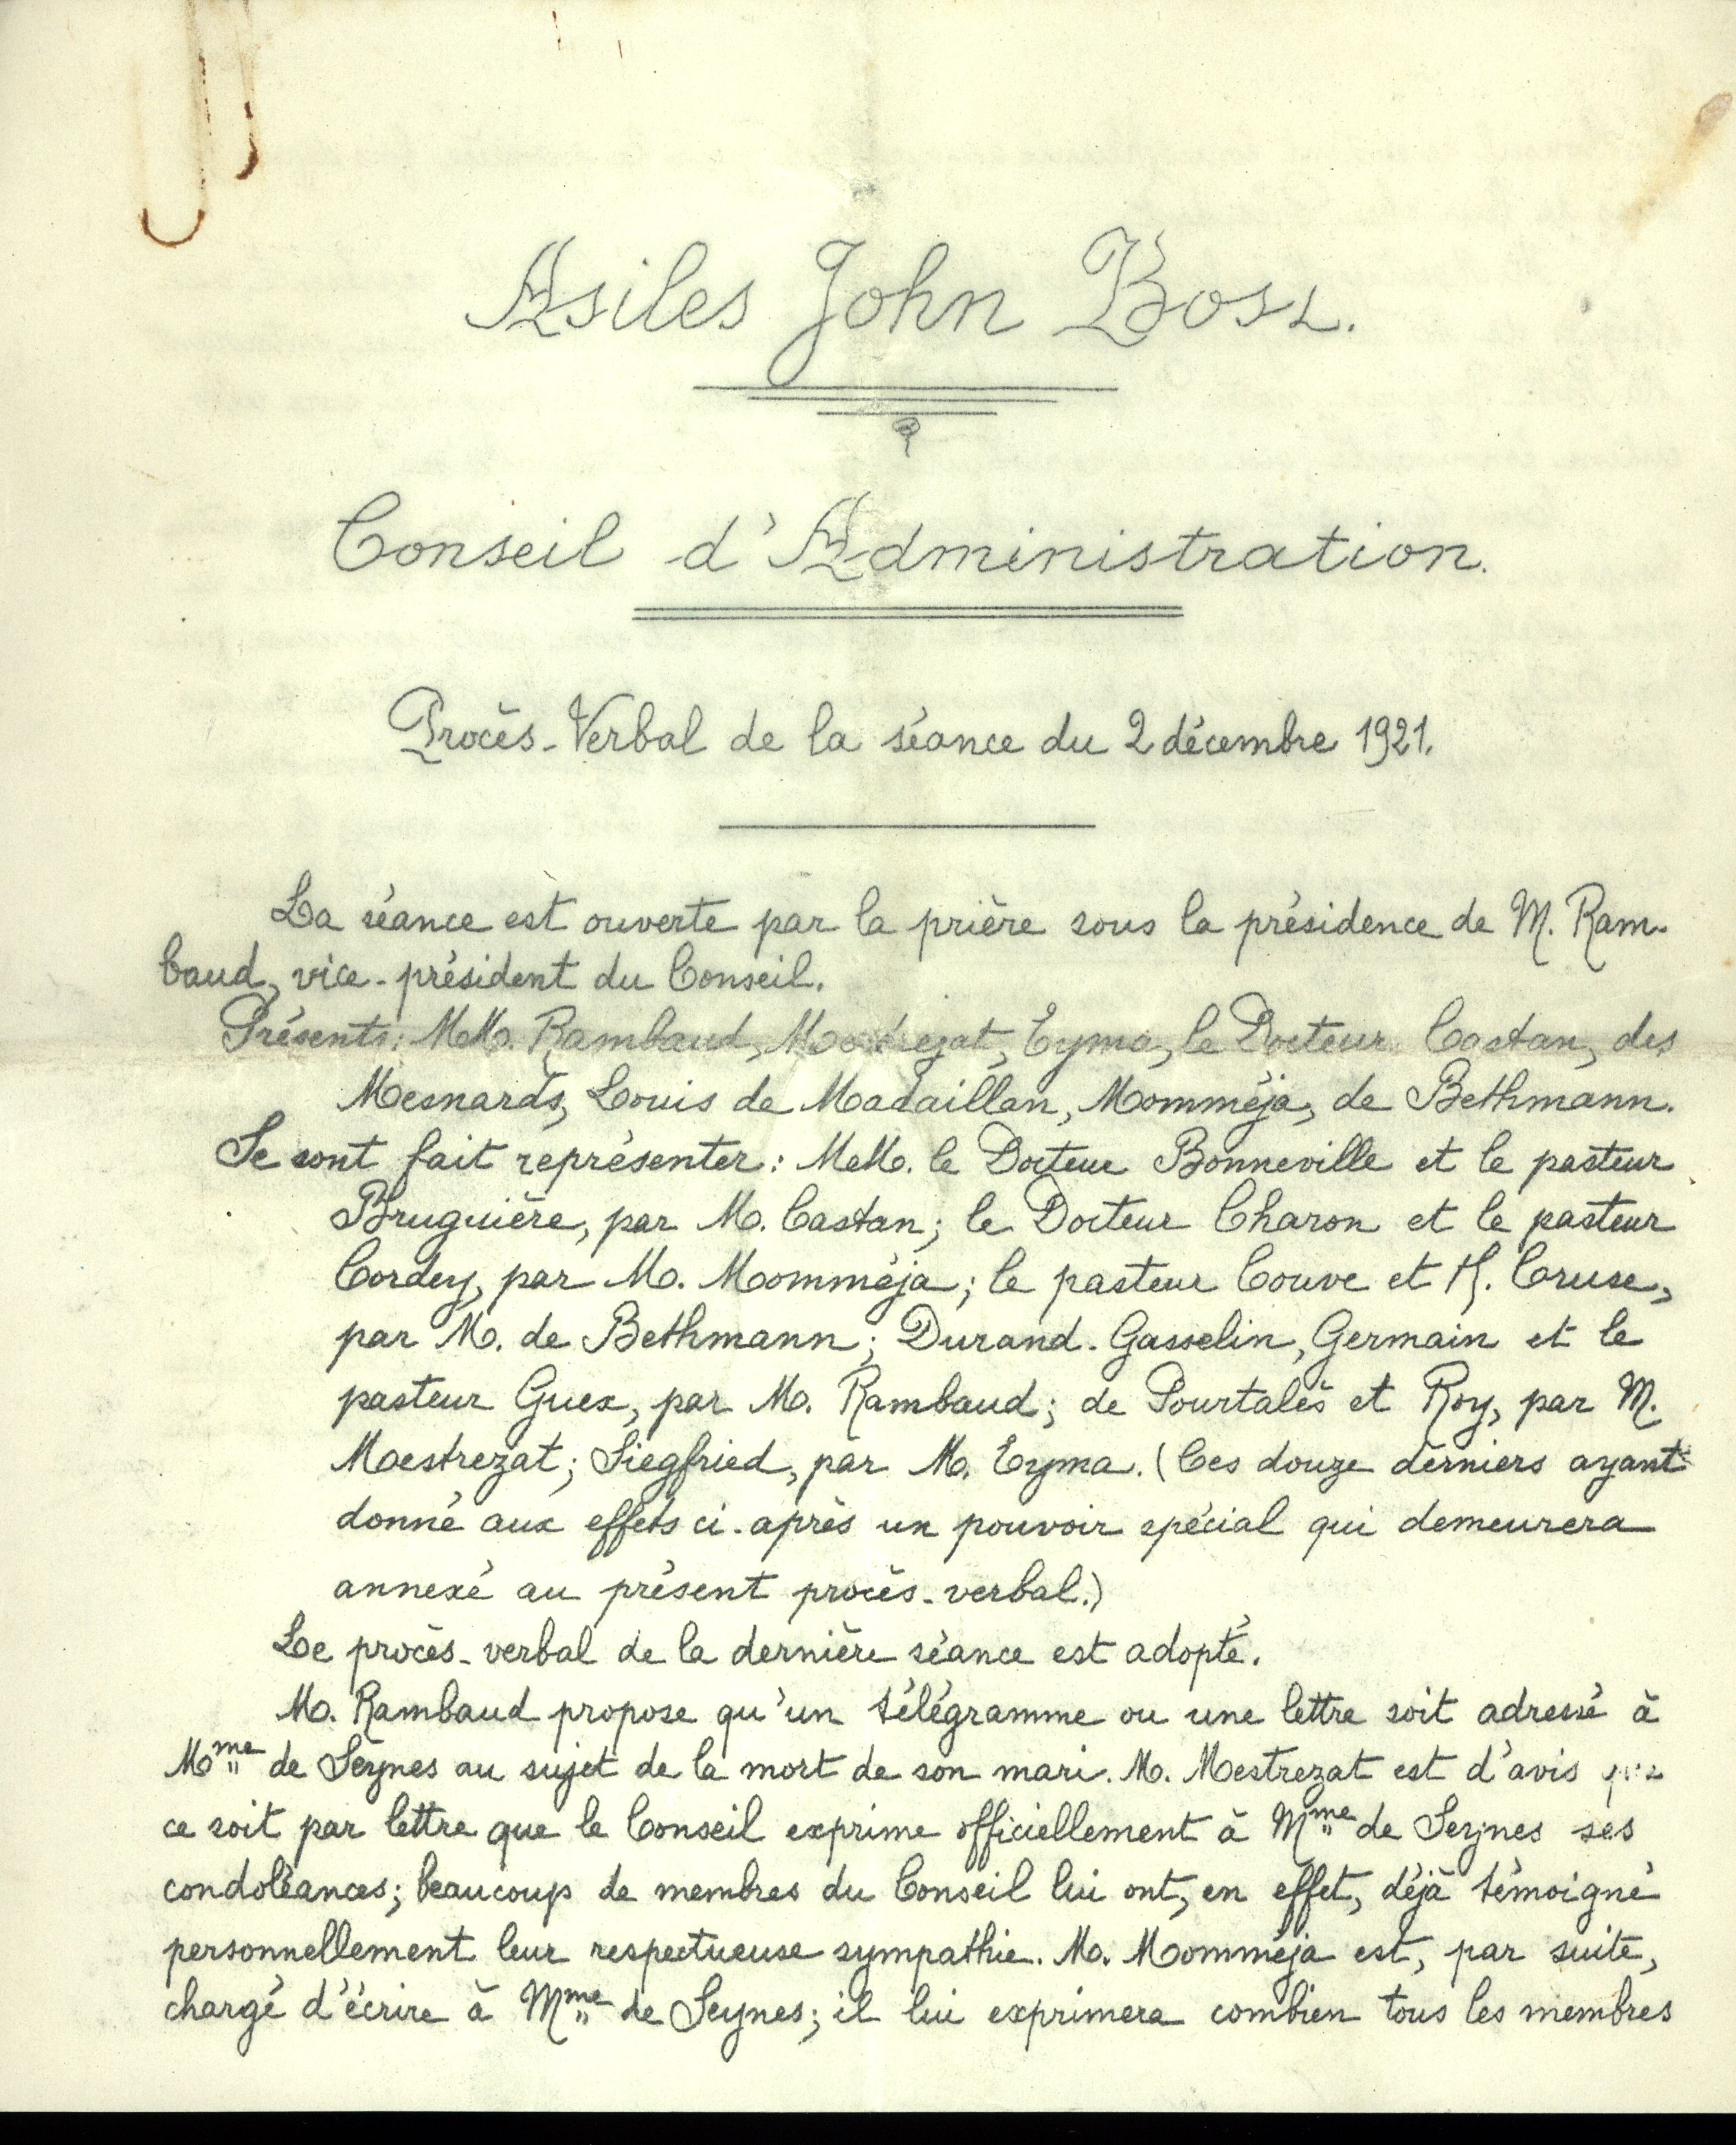 Asiles John Bost.
Conseil d'Administration.
Procès-Verbal de la séance du 2 décembre 1921.
La séance est ouverte par la prière sous la présidence de M. Ram-
baud, vice-président du Conseil.
Présents: MM. Rambaud, Mestrezat, Eyma, le Docteur Castan, des
Mesnards, Louis de Madaillan, Momméja, de Bethmann.
Se sont fait représenter: MM. le Docteur Bonneville et le pasteur
Bruguière, par M. Castan; le Docteur Charon et le pasteur
Cordey, par M. Momméja; le pasteur Couve et H. Cruse,
par M. de Bethmann; Durand-Gasselin, Germain et le
pasteur Guex, par M. Rambaud; de Pourtalès et Roy, par M.
Mestrezat; Siegfried, par M. Eyma. (Ces douze derniers ayant
donné aux effets ci-après un pouvoir spécial qui demeurera
annexé au présent procès-verbal.)
Le procès-verbal de la dernière séance est adopté.
M. Rambaud propose qu'un télégramme ou une lettre soit adressé à
Mme de Seynes au sujet de la mort de son mari. M. Mestrezat est d'avis que
ce soit par lettre que le Conseil exprime officiellement à Mme de Seynes ses
condoléances; beaucoup de membres du Conseil lui ont, en effet, déjà témoigné
personnellement leur respectueuse sympathie. M. Momméja est, par suite,
chargé d'écrire à Mme de Seynes; il lui exprimera combien tous les membres